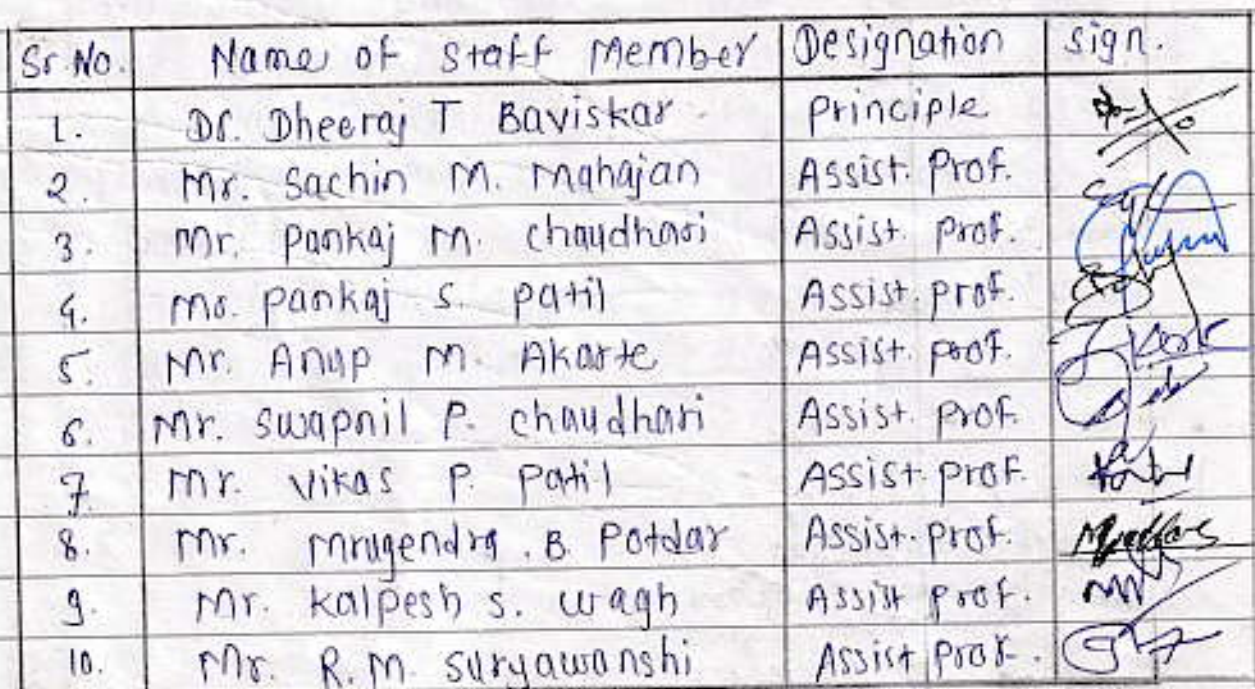 Sr. No. Name of Staff Member Designation sign.
1. Dr. Dheeraj T Baviskar Principle
2. Mr. Sachin M. Mahajan Assist. Prof.
3. Mr. Pankaj M. Chaudhari Assist. Prof.
4. Mr. Pankaj S. Patil Assist. Prof.
5. Mr. Anup M. Akarte Assist. Prof.
6. Mr. Swapnil P. Chaudhari Assist. Prof.
7. Mr. Vikas P. Patil Assist. Prof.
8. Mr. Mrugendra .B. Potdar Assist. Prof.
9. Mr. Kalpesh S. Wagh Assist Prof.
10. Mr. R.M. Suryawanshi Assist Prof.